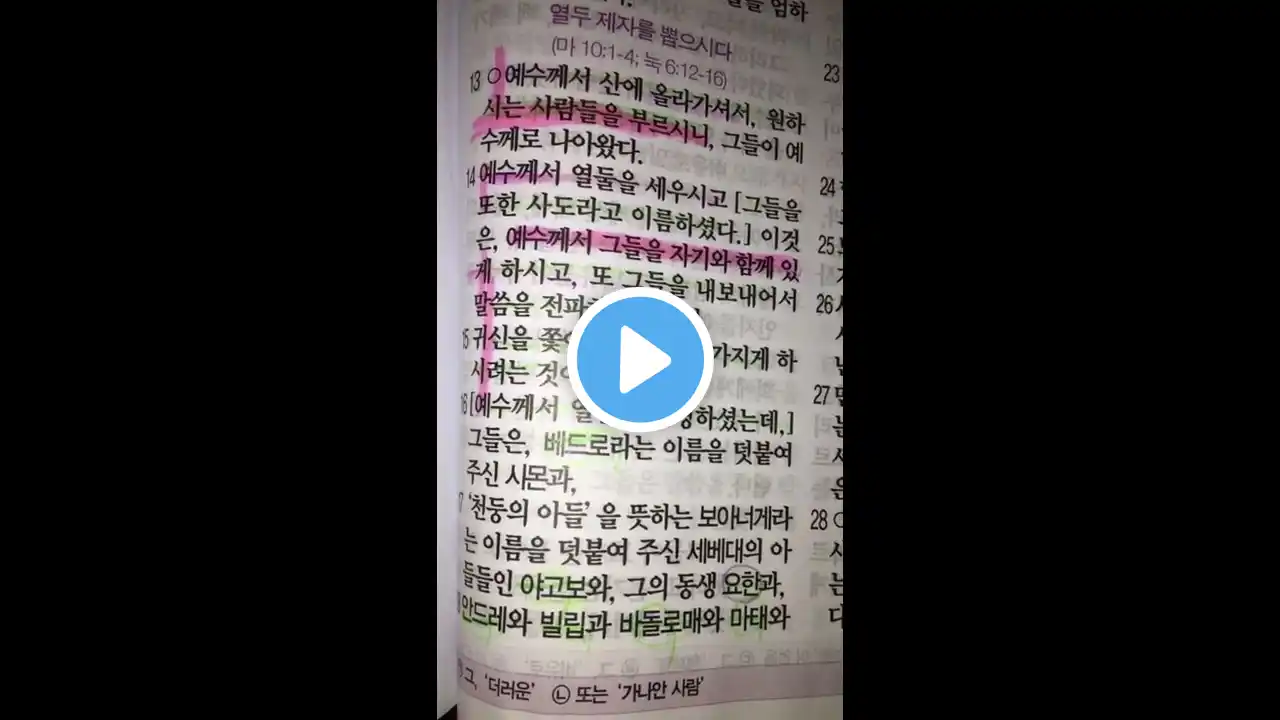 엄하
열두 제자를 뽑으시다
(마 10:1-4; 눅 6:12-16)
13 ○예수께서 산에 올라가셔서, 원하
시는 사람들을 부르시니, 그들이 예
수께로 나아왔다.
14 예수께서 열둘을 세우시고 [그들을
또한 사도라고 이름하셨다.] 이것
은, 예수께서 그들을 자기와 함께 있
게 하시고, 또 그들을 내보내어서
말씀을 전파
15 귀신을 가지게 하
시려는
[예수께서
그들은, 베드로라는 이름을 덧붙여
주신 시몬과,
'천둥의 아들'을 뜻하는 보아너게라
는 이름을 덧붙여 주신 세베대의 아
들들인 야고보와, 그의 동생 요한과,
안드레와 빌립과 바돌로매와 마태와
그, '더러운' ㉡ 또는 '가나안 사람'
23
24
25
26
27
28